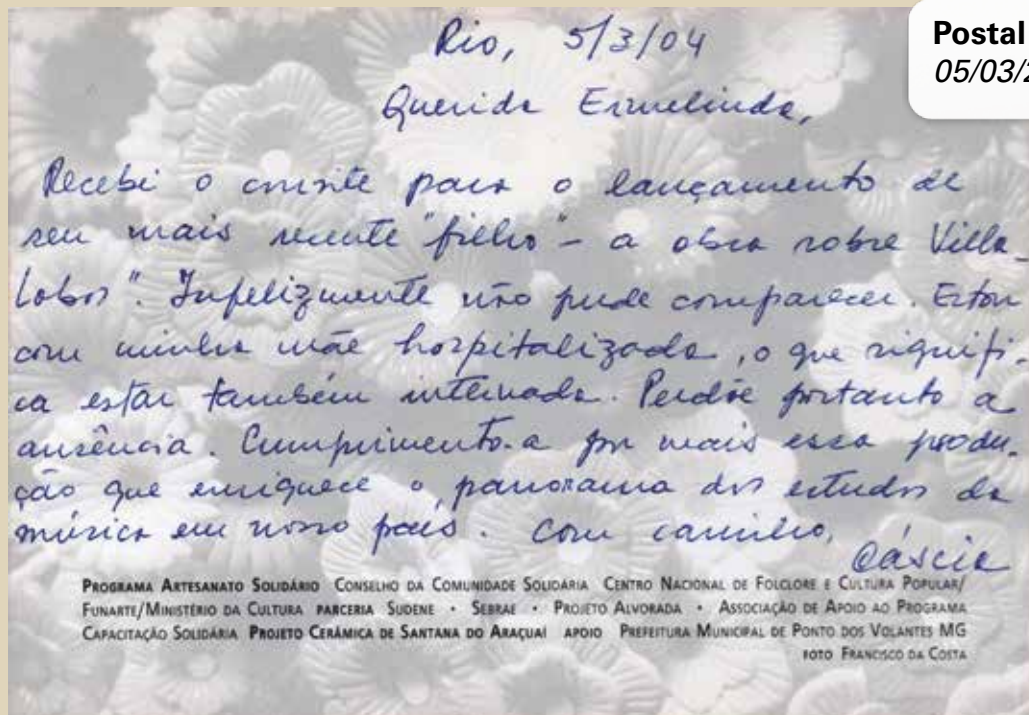 Postal
05/03/2
Rio, 5/3/04
Querida Ermelinda,
Recebi o convite para o lançamento de
seu mais recente "filho" - a obra sobre Villa-
Lobos". Infelizmente não pude comparecer. Estou
com minha mãe hospitalizada, o que signifi-
ca estar também internada. Perdoe portanto a
ausência. Cumprimento-a por mais essa produ-
ção que enriquece o panorama dos estudos da
música em nosso país. Com carinho,
Cáscia
PROGRAMA ARTESANATO SOLIDÁRIO CONSELHO DA COMUNIDADE SOLIDÁRIA CENTRO NACIONAL DE FOLCLORE E CULTURA POPULAR/
FUNARTE/MINISTÉRIO DA CULTURA PARCERIA SUDENE • SEBRAE • PROJETO ALVORADA • ASSOCIAÇÃO DE APOIO AO PROGRAMA
CAPACITAÇÃO SOLIDÁRIA PROJETO CERÂMICA DE SANTANA DO ARAÇUAÍ APOIO PREFEITURA MUNICIPAL DE PONTO DOS VOLANTES MG
FOTO FRANCISCO DA COSTA